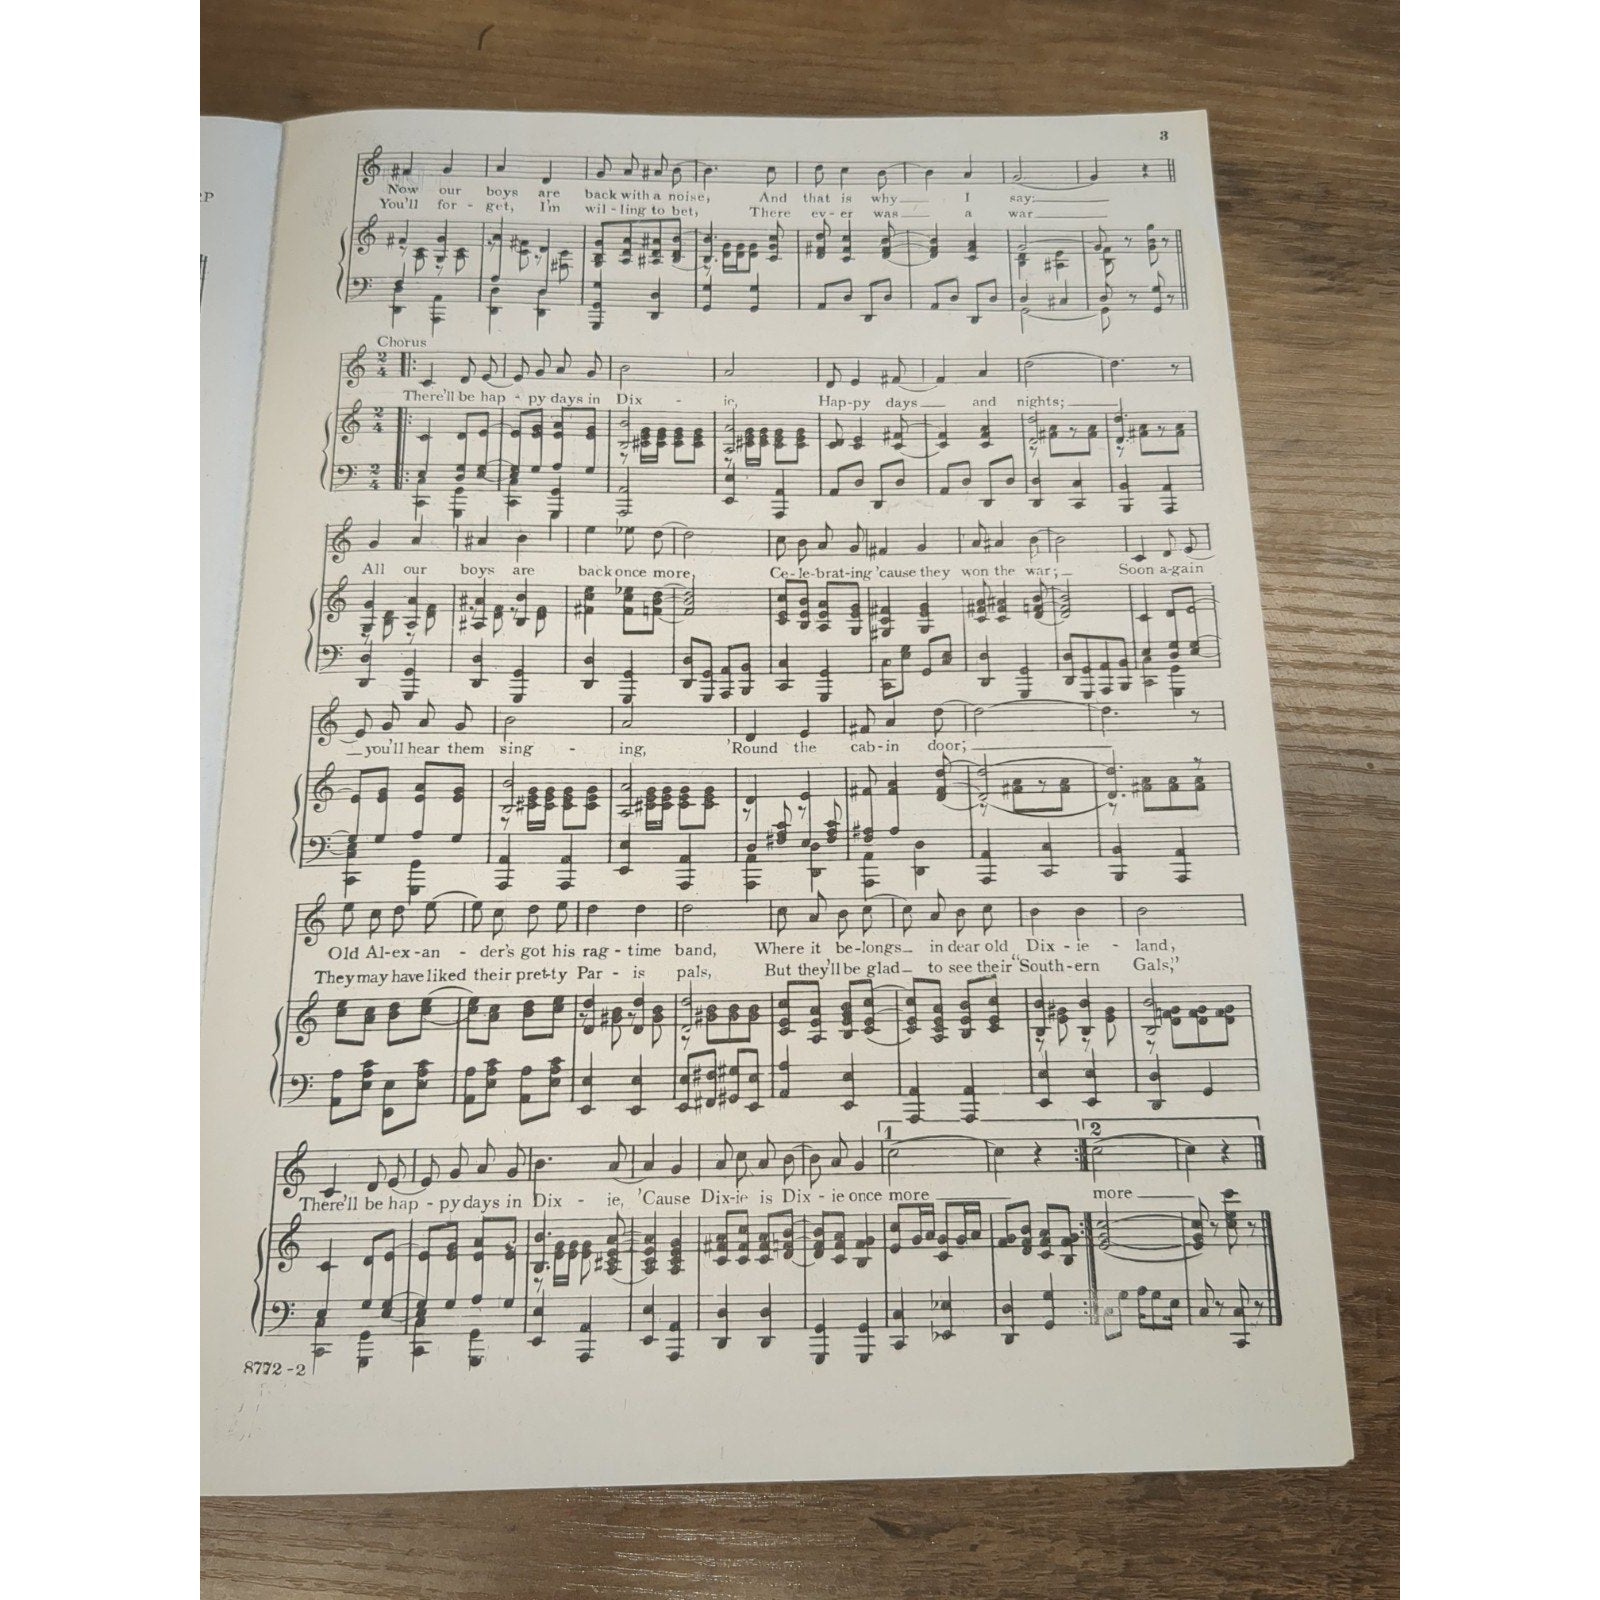 3
Now our boys are back with a noise, And that is why I say:
You'll for - get, I'm wil - ling to bet, There ev - er was a war
Chorus
There'll be hap - py days in Dix - ie, Hap - py days and nights;
All our boys are back once more, Ce - le - brat - ing 'cause they won the war; Soon a - gain
you'll hear them sing - ing, 'Round the cab - in door;
Old Al - ex - an - der's got his rag - time band, Where it be - longs in dear old Dix - ie - land,
They may have liked their pret - ty Par - is pals, But they'll be glad to see their "South - ern Gals,"
1 2
There'll be hap - py days in Dix - ie, 'Cause Dix - ie is Dix - ie once more more
8772 - 2